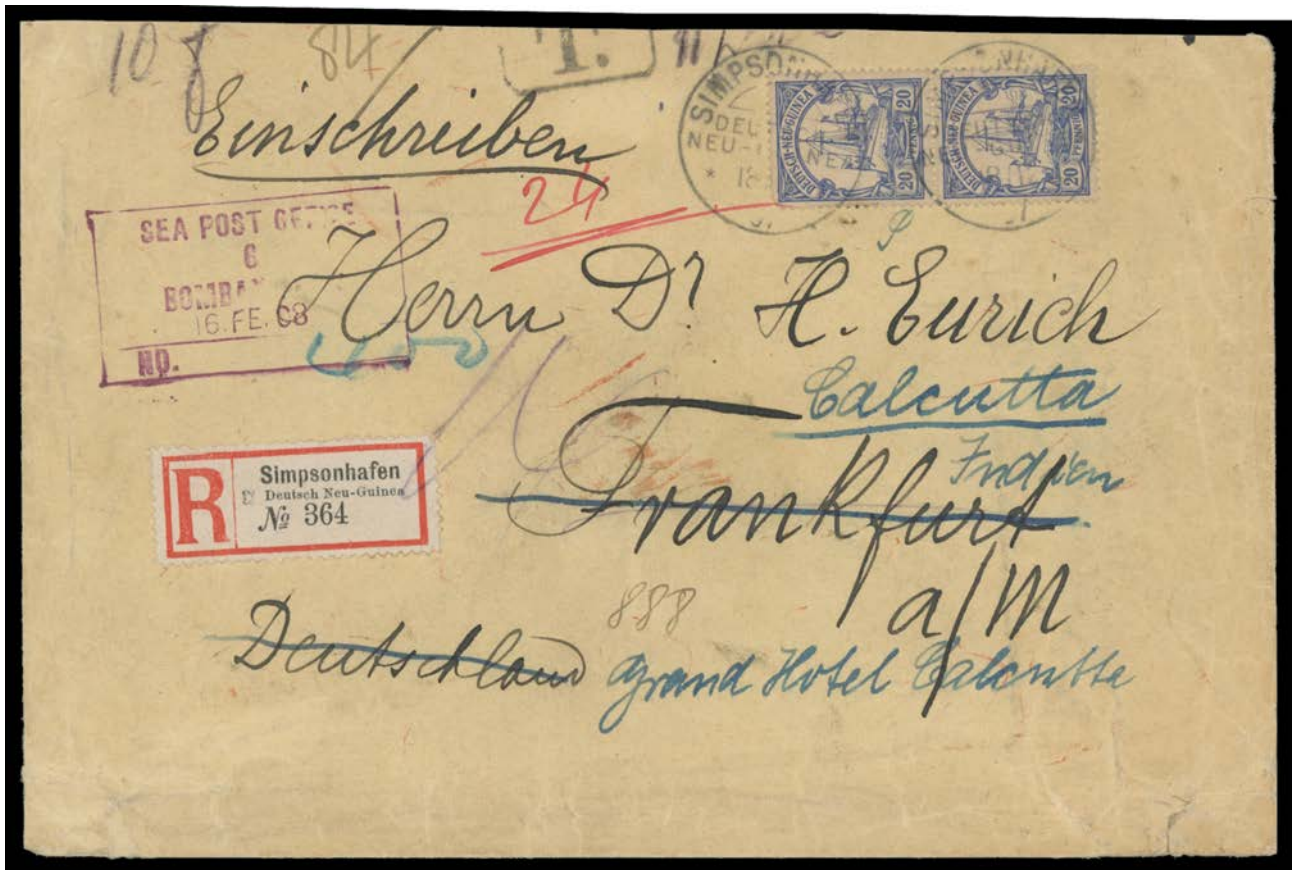 10
84
T.
Einschreiben
24
SIMPSONH
DEU
NEU-
NEA
* 18
DEUTSCH-NEU-GUINEA
20 PFENNIG 20
DEUTSCH-NEU-GUINEA
20 PFENNIG 20
SEA POST OFFICE
6
BOMBAY
16. FE. 08
NO.
Herrn Dr H. Eurich
Calcutta
Indien
Frankfurt
a/M
R
Simpsonhafen
Deutsch Neu-Guinea
№ 364
888
Deutschland Grand Hotel Calcutta